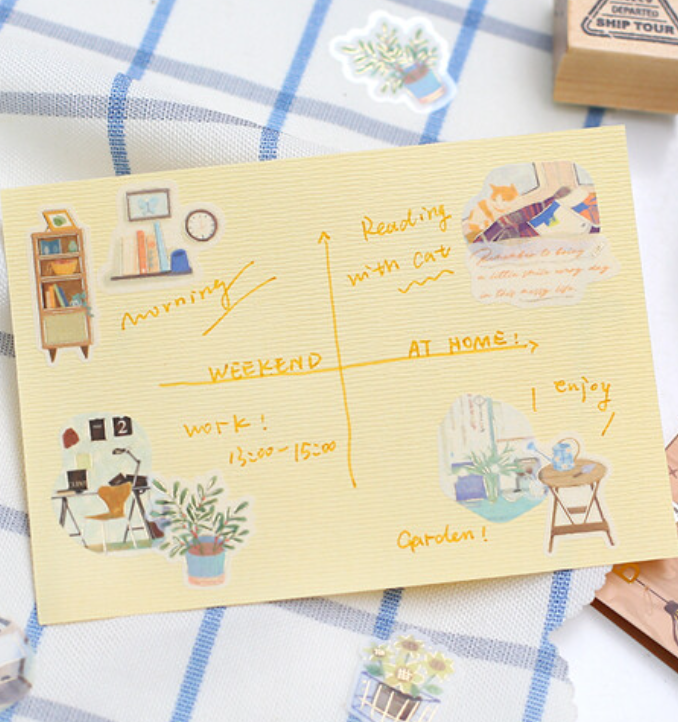 DEPARTED
SHIP TOUR
morning
Reading
with cat
Remember to bring
a little smile every day
in this messy life.
WEEKEND
AT HOME!
2
work!
13:00-15:00
enjoy
Garden!